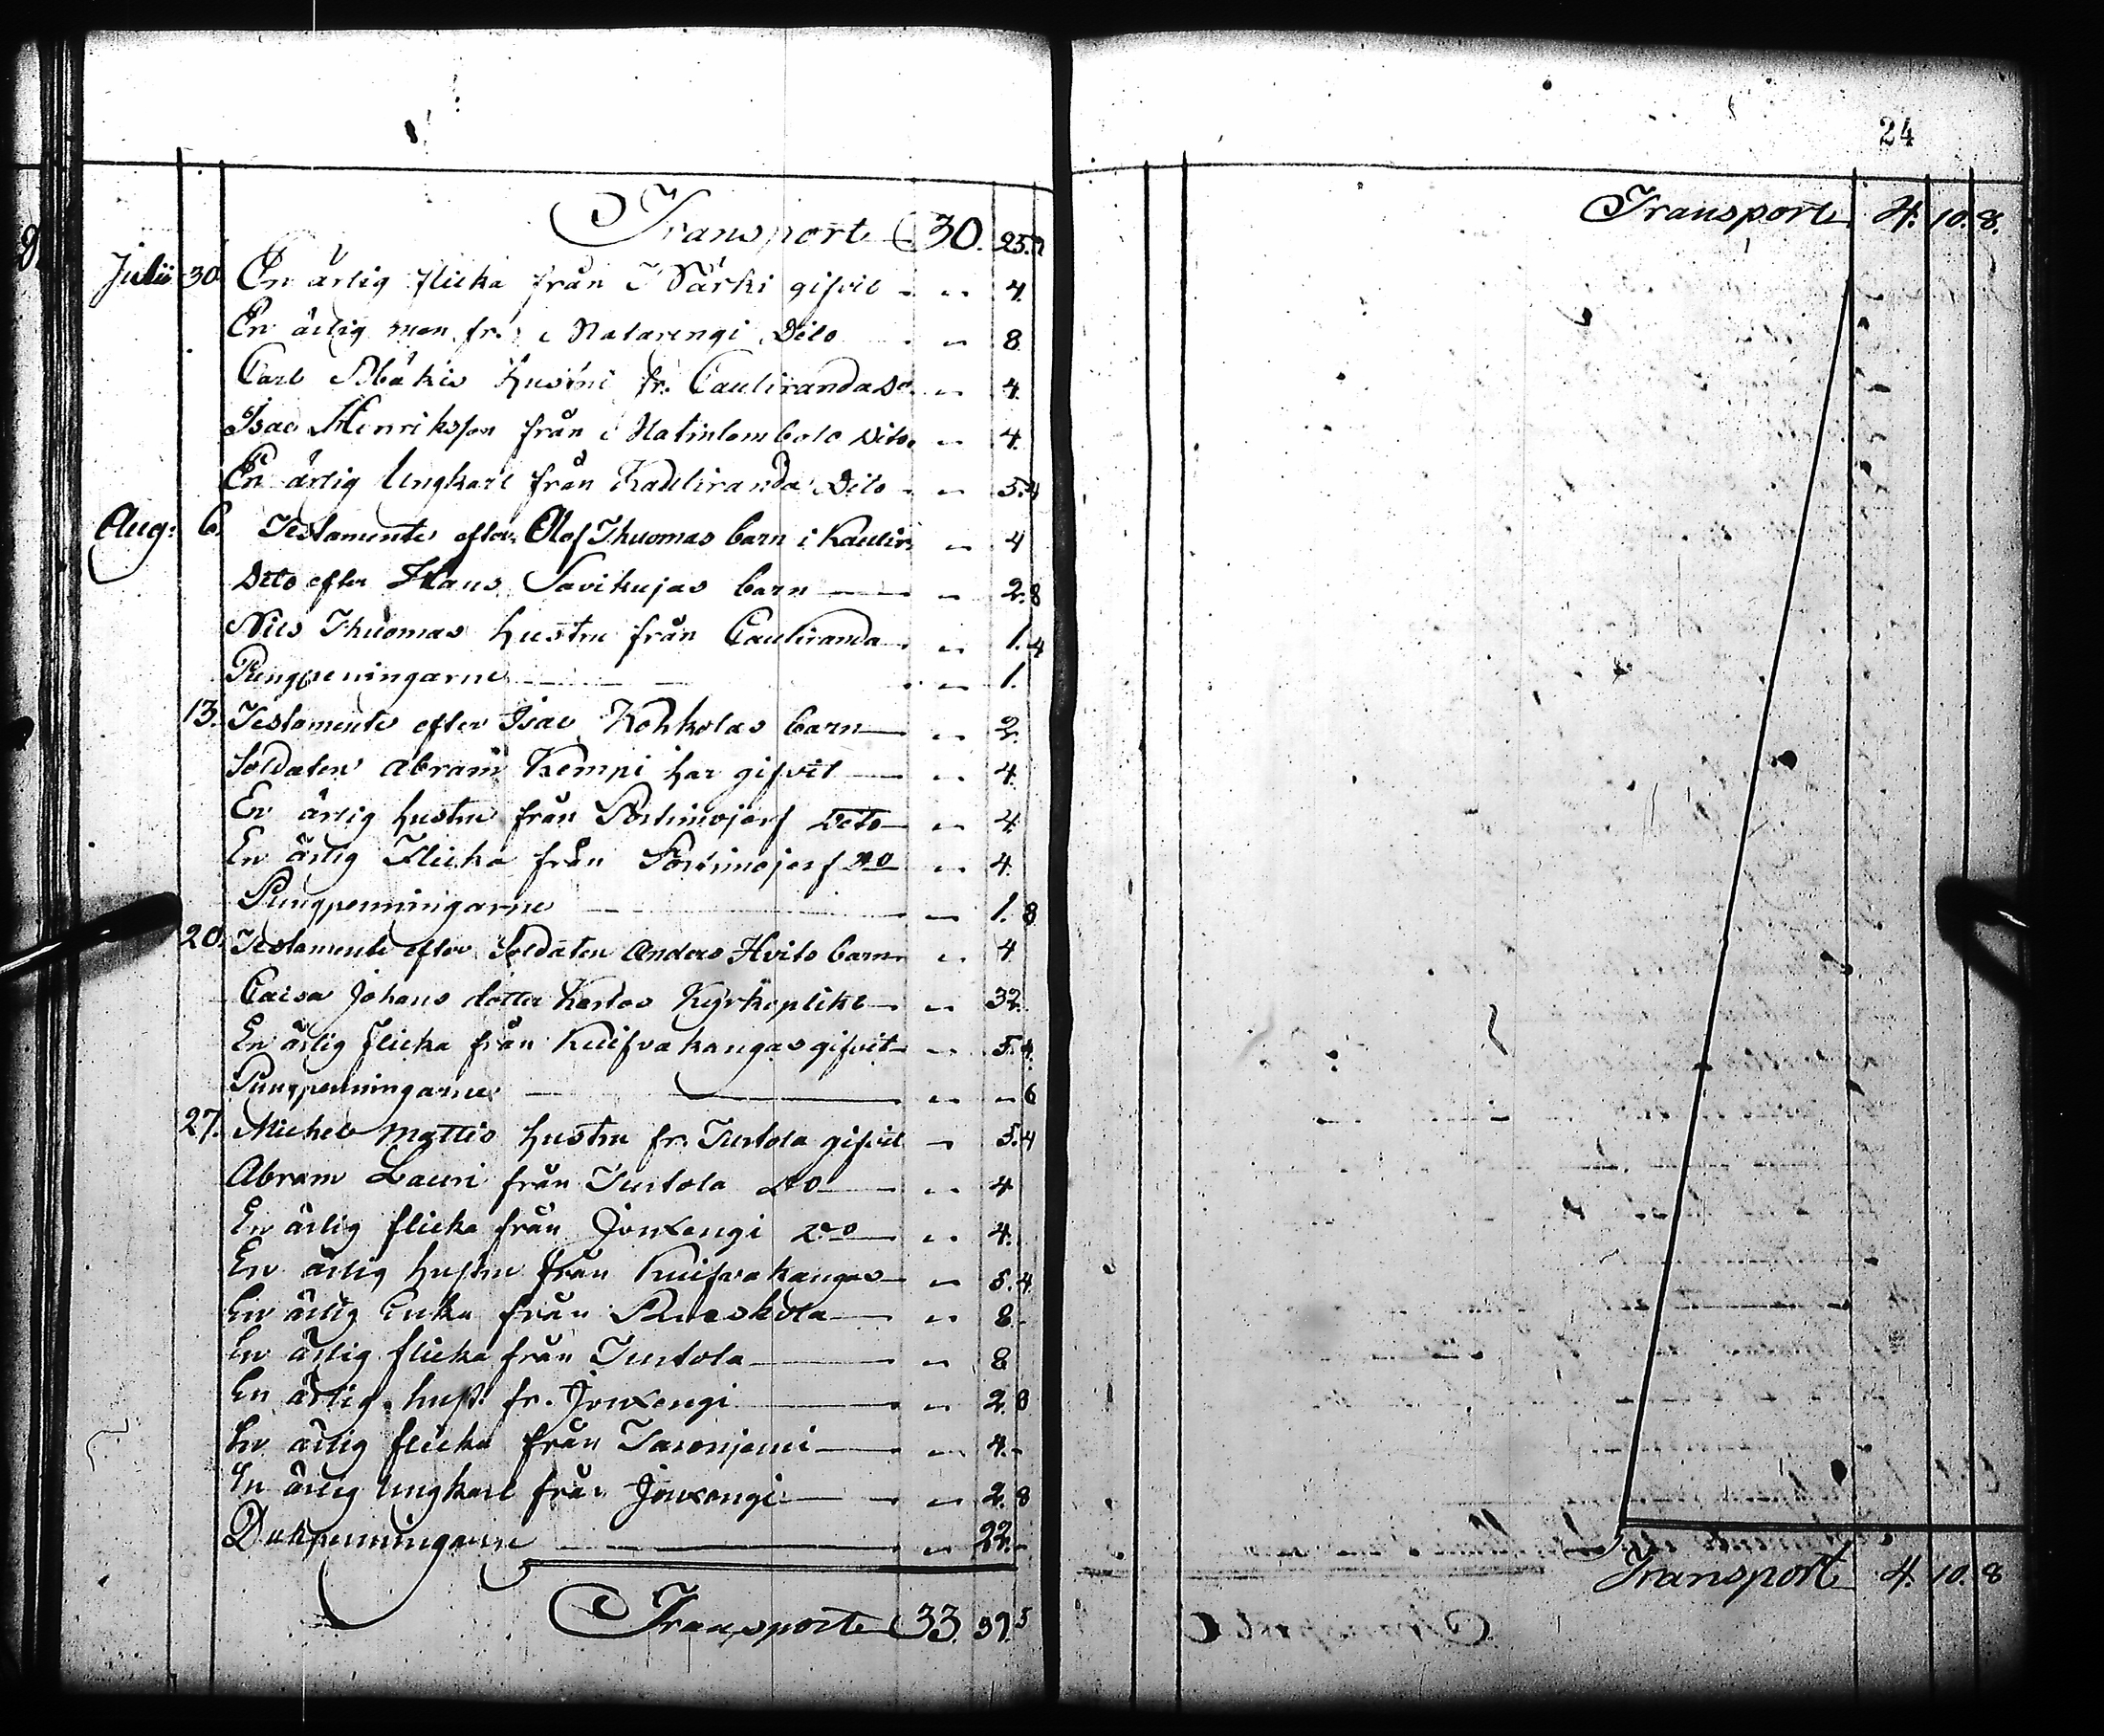 24
Transport 30. 25.
Julii 30 En ärlig flicka från Närki gifvit " 4.
En ärlig man fr. Matarengi Dito " 8
Carl hustru fr. Cauliranda Do " 4.
Isac Henriksson från Ratinlombolo Dito " 4.
En ärlig Ungkarl från Kauliranda Dito " 5.4
Aug: 6. Testamente efter Olof Thuomas barn i Kaulir. " 4
Dito efter Hans Savikujas barn " 2.8
Nils Thuomas hustru från Cauliranda " 1.4
Pungpeningarne " 1.
13. Testamente efter Isac Kohkolas barn " 2.
Soldaten Abram Kempi har gifvit " 4.
En ärlig hustru från Portimojerf Dito " 4.
En ärlig Flicka från Portimojerf Do " 4.
Pungpenningarne " 1. 8
20. Testamente efter Soldaten Anders Hvits barn " 4
Caisa Johans dotter Kyrkoplikt " 32.
En ärlig flicka från Kuifvakangas gifvit " 5.4.
Pungpenningarne " " 6
27. Michel Mattis hustru fr. Turtola gifvit " 5.4
Abram Lauri från Turtola Do " 4
En ärlig flicka från Jouxengi Do " 4.
En ärlig hustru från Kuifvakangas " 5.4
En ärlig Enka från Ruskola " 8.
En ärlig flicka från Turtola " 8
En ärlig hust. fr. Jouxengi " 2.8
En ärlig flicka från " 4.
En ärlig Ungkarl från Jouxengi " 2.8
Dukpenningarne " 22.
Transport 33. 37. 5
Transport 4. 10. 8.
Transport 4. 10. 8